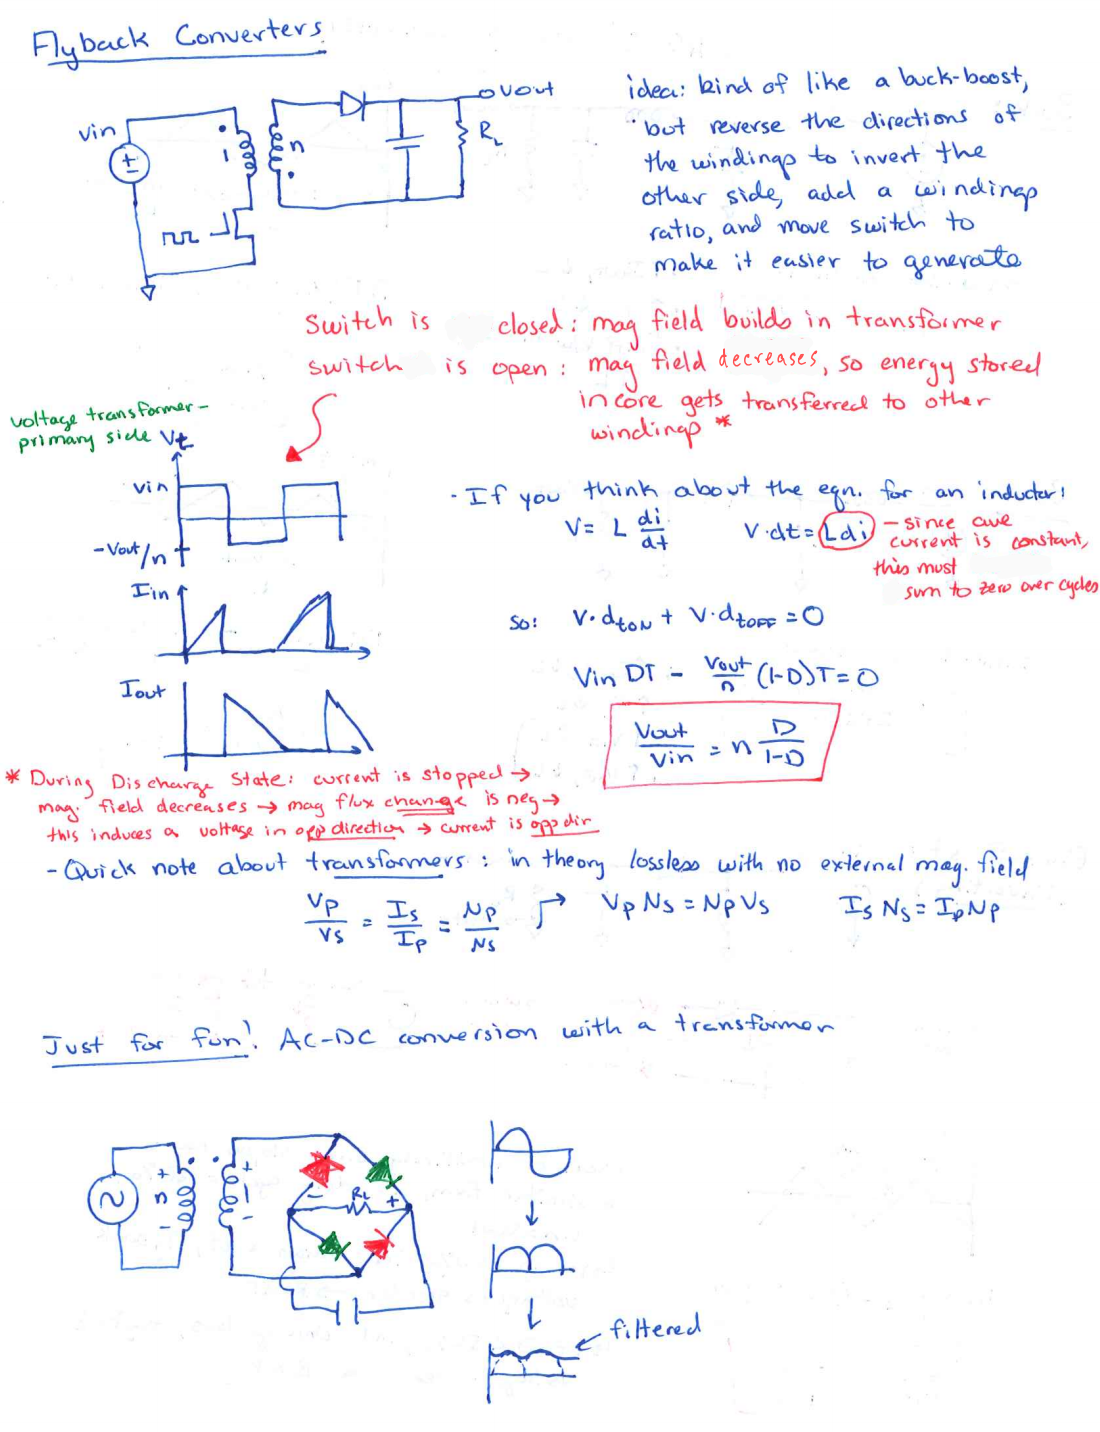 Flyback Converters
Vin
1
n
Vout
RL
idea: kind of like a buck-boost,
but reverse the directions of
the windings to invert the
other side, add a windings
ratio, and move switch to
make it easier to generate
Switch is closed: mag field builds in transformer
switch is open: mag field decreases, so energy stored
in core gets transferred to other
windings *
voltage transformer-
primary side Vt
Vin
-Vout/n
Iin
Iout
- If you think about the eqn. for an inductor:
V = L di/dt V·dt = Ldi
- since ave
current is constant,
this must
sum to zero over cycles
So: V·dtON + V·dtOFF = 0
Vin DT - Vout/n (1-D)T = 0
Vout/Vin = n D/1-D
* During Discharge State: current is stopped →
mag. field decreases → mag flux change is neg →
this induces a voltage in opp direction → current is opp dir
- Quick note about transformers: in theory lossless with no external mag. field
Vp/Vs = Is/Ip = Np/Ns → VpNs = NpVs IsNs = IpNp
Just for fun! AC-DC conversion with a transformer
+ n -
+ 1 -
- RL +
filtered